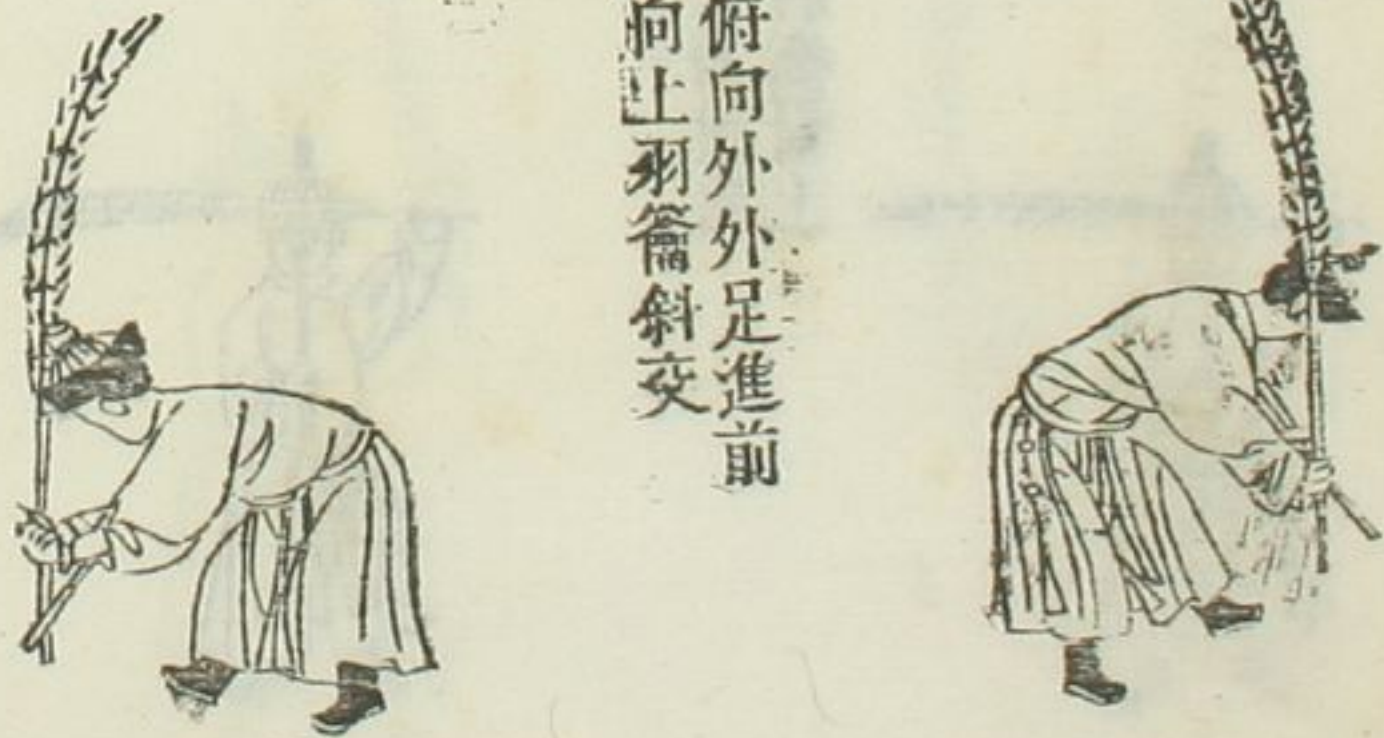 俯向外外足進前
向上羽籥斜交